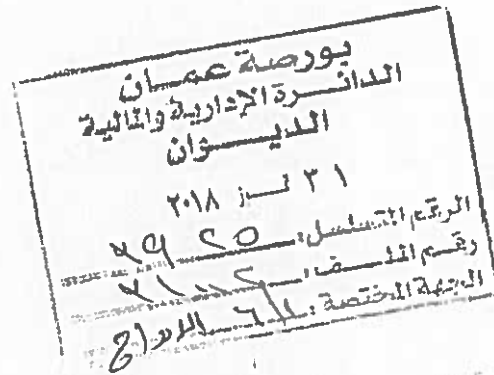 بورصة عمان
الدائرة الإدارية والمالية
الديوان
٣١ تموز ٢٠١٨
الرقم المتسلسل:
رقم الملف:
الجهة المختصة: الادراج